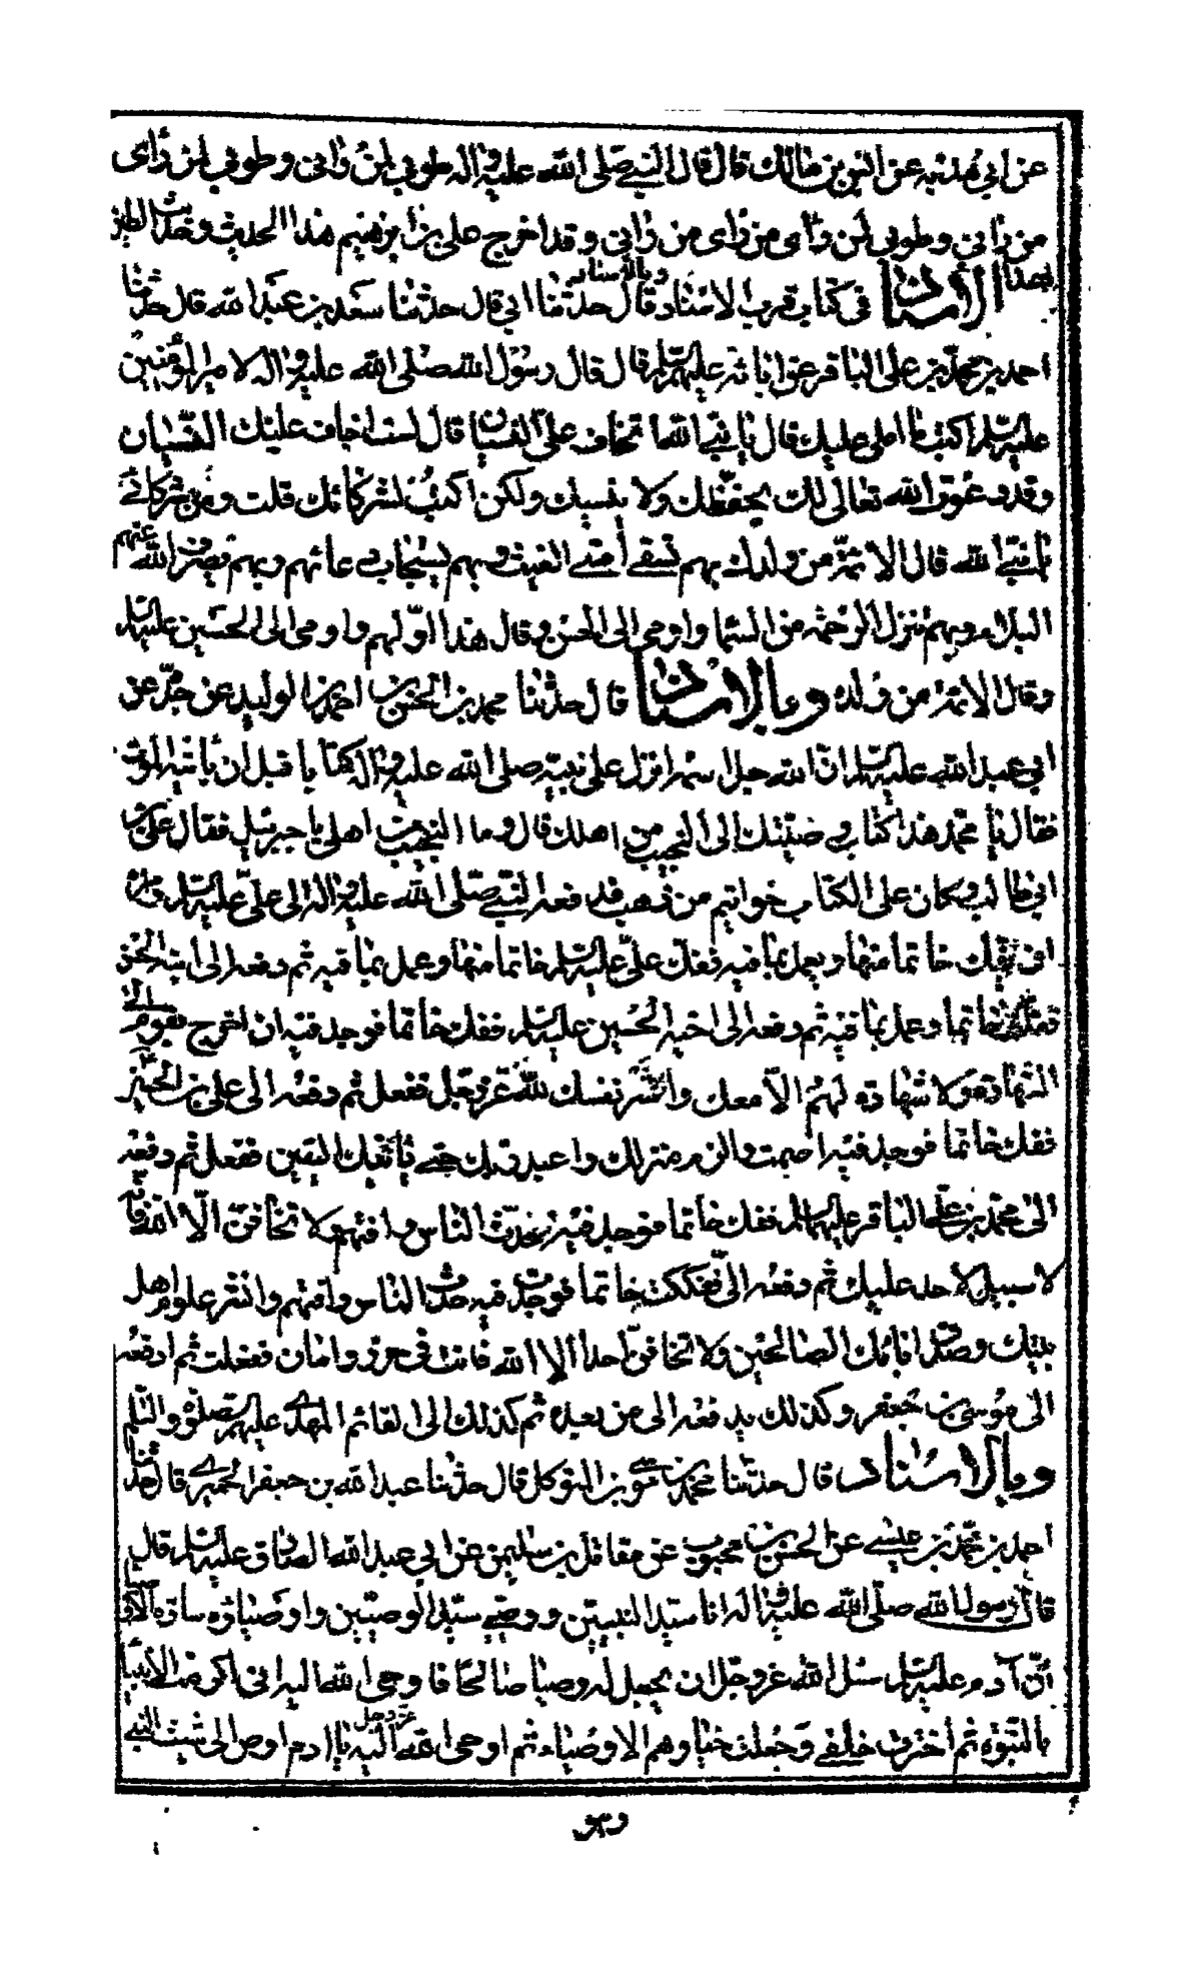 عن ابي هدبه عن انس بن مالك قال قال النبي صلى الله عليه واله طوبى لمن راني وطوبى لمن راى
من راني وطوبى لمن راى من راى من راني وقد اخرج علي بن ابرهيم هذا الحديث وحديث الطير
بهذا الاسناد في كتاب قرب الاسناد وبالاسناد قال حدثنا ابي قال حدثنا سعد بن عبد الله قال حدثنا
احمد بن محمد بن علي الباقر عن ابائه عليهم السلم قال قال رسول الله صلى الله عليه واله لامير المؤمنين
عليه السلم اكتب ما املى عليك قال يا نبي الله اتخاف على النسيان قال لست اخاف عليك النسيان
وقد دعوت الله تعالى لك يحفظك ولا ينسيك ولكن اكتب لشركائك قلت ومن شركائي
يا نبي الله قال الائمة من ولدك بهم تسقى امتي الغيث وبهم يستجاب دعائهم وبهم يصرف الله عنهم
البلاء وبهم تنزل الرحمة من السماء واومى الى الحسن وقال هذا اولهم واومى الى الحسين عليه السلم
وقال الائمة من ولده وبالاسناد قال حدثنا محمد بن الحسن بن احمد بن الوليد عن جده عن
ابي عبد الله عليه السلم ان الله جل اسمه انزل على نبيه صلى الله عليه واله كتابا قبل ان يأتيه الموت
فقال يا محمد هذا كتاب وصيتك الى النجيب من اهلك قال وما النجيب من اهلي يا جبرئيل فقال علي بن
ابي طالب وكان على الكتاب خواتيم من ذهب فدفعه النبي صلى الله عليه واله الى علي عليه السلم وامره
ان يفك خاتما منها ويعمل بما فيه ففك علي عليه السلم خاتما منها وعمل بما فيه ثم دفعه الى ابنه الحسن
ففك خاتما وعمل بما فيه ثم دفعه الى اخيه الحسين عليه السلم ففك خاتما فوجد فيه ان اخرج بقوم الى
الشهادة ولا شهادة لهم الا معك واشر نفسك لله عز وجل ففعل ثم دفعه الى علي بن الحسين
ففك خاتما فوجد فيه اصمت والزم منزلك واعبد ربك حتى يأتيك اليقين ففعل ثم دفعه
الى محمد بن علي الباقر عليهما السلم ففك خاتما فوجد فيه حدث الناس وافتهم ولا تخافن الا الله فانه
لا سبيل لاحد عليك ثم دفعه الي ففككت خاتما فوجدت فيه حدث الناس وافتهم وانشر علوم اهل
بيتك وصدق ابائك الصالحين ولا تخافن احدا الا الله فانت في حرز وامان ففعلت ثم ادفعه
الى موسى بن جعفر وكذلك يدفعه الى من بعده ثم كذلك الى القائم المهدي عليهم الصلوة والسلم
وبالاسناد قال حدثنا محمد بن موسى بن المتوكل قال حدثنا عبد الله بن جعفر الحميري قال حدثنا
احمد بن محمد بن عيسى عن الحسن بن محبوب عن مقاتل بن سليمن عن ابي عبد الله الصادق عليه السلم قال
قال رسول الله صلى الله عليه واله انا سيد النبيين ووصيي سيد الوصيين واوصياؤه سادة الاوصياء
ان آدم عليه السلم سئل الله عز وجل ان يجعل له وصيا صالحا فاوحى الله اليه اني اكرمت الانبياء
بالنبوة ثم اخترت خلقي وجعلت خيارهم الاوصياء ثم اوحى الله عز وجل اليه يا ادم اوص الى شيث النبي
وهو